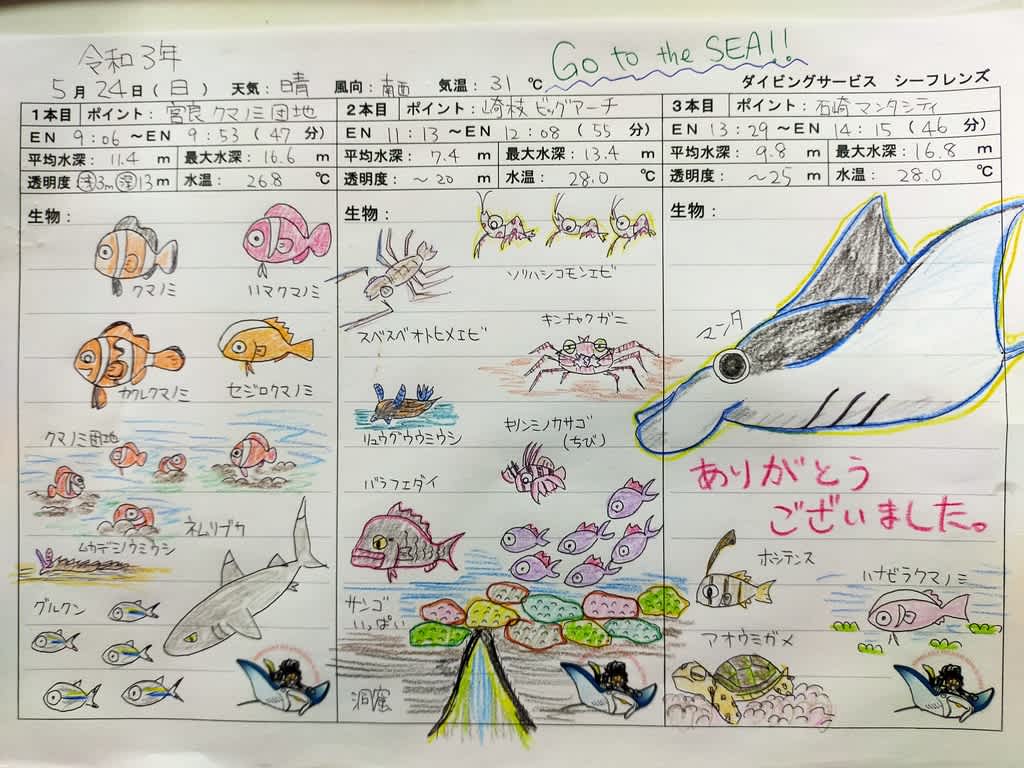 令和3年
Go to the SEA!!
5月24日(日) 天気:晴 風向:南西 気温:31℃
ダイビングサービス シーフレンズ
1本目 ポイント:宮良 クマノミ団地
EN 9:06 ~EN 9:53 (47分)
平均水深: 11.4 m 最大水深: 16.6 m
透明度 浅3m 深13m 水温: 26.8 ℃
生物:
クマノミ
ハマクマノミ
カクレクマノミ
セジロクマノミ
クマノミ団地
ネムリブカ
ムカデミノウミウシ
グルクン
2本目 ポイント:崎枝 ビッグアーチ
EN 11:13 ~EN 12:08 (55分)
平均水深: 7.4 m 最大水深: 13.4 m
透明度: ~20 m 水温: 28.0 ℃
生物:
ソリハシコモンエビ
スベスベオトヒメエビ
キンチャクガニ
リュウグウウミウシ
キリンミノカサゴ
(ちび)
バラフエダイ
サンゴ
いっぱい
洞窟
3本目 ポイント:石崎 マンタシティ
EN 13:29 ~EN 14:15 (46分)
平均水深: 9.8 m 最大水深: 16.8 m
透明度: ~25 m 水温: 28.0 ℃
生物:
マンタ
ありがとう
ございました。
ホシテンス
ハナビラクマノミ
アオウミガメ